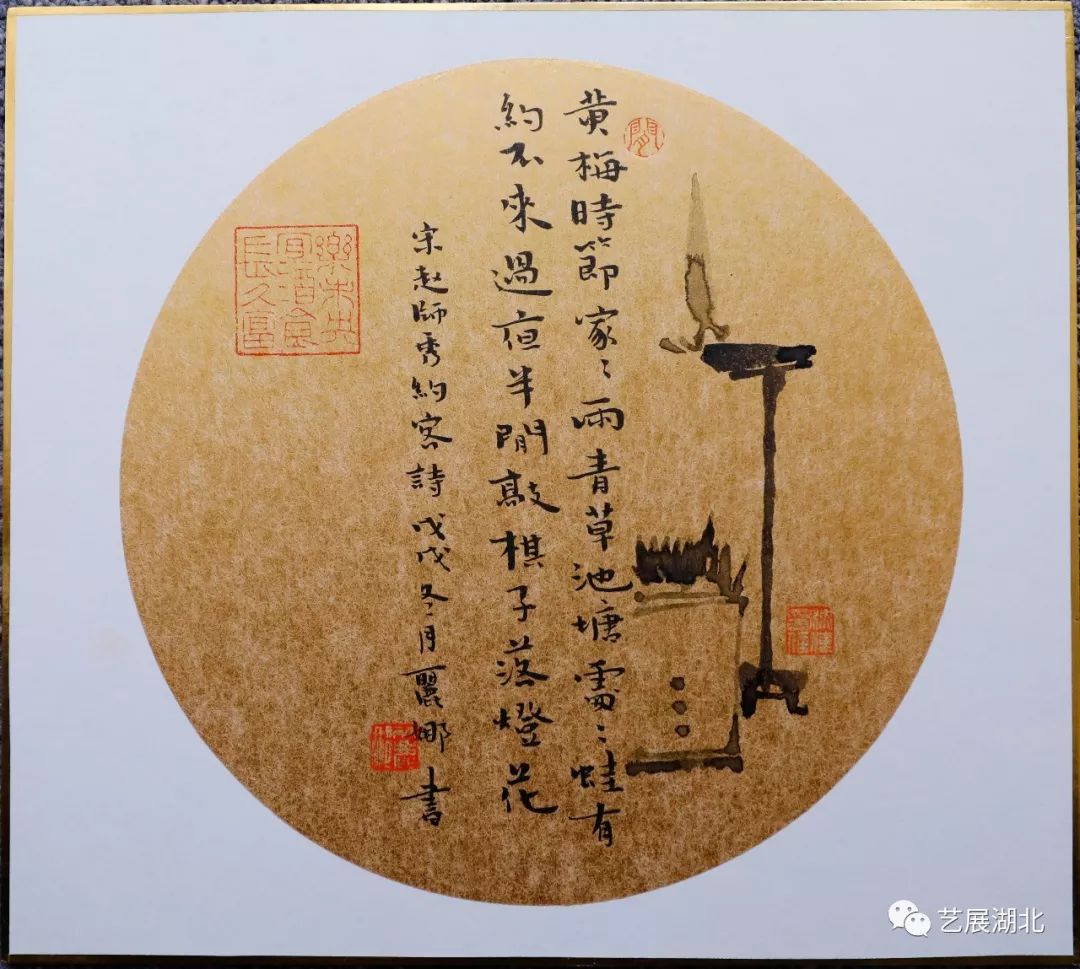 黄梅時節家〻雨青草池塘處〻蛙有
約不來過夜半閒敲棋子落燈花
宋赵師秀約客詩戊戌冬月麗娜書
樂未央
宜酒食
長久富
艺展湖北